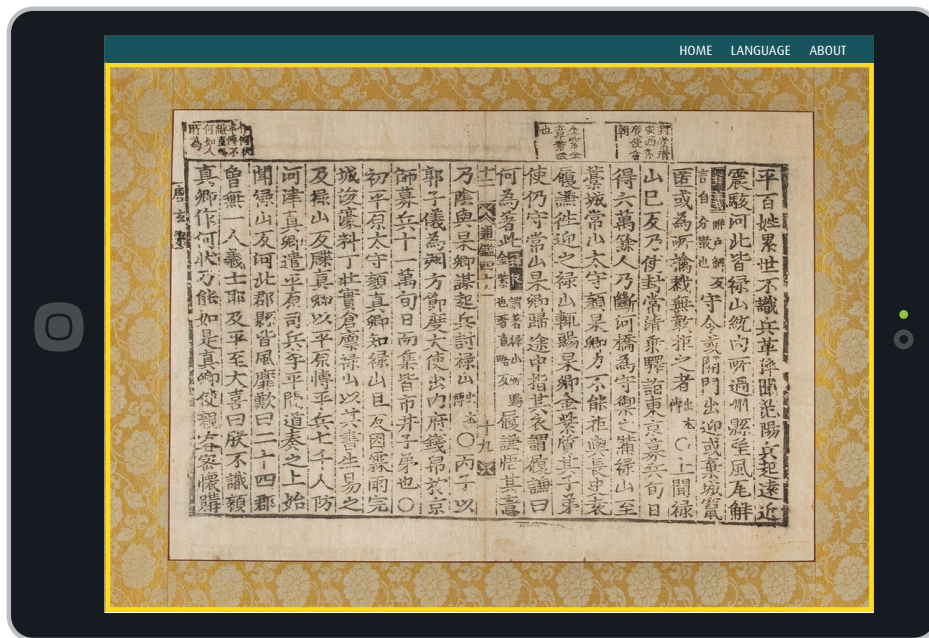 HOME LANGUAGE ABOUT
平百姓累世不識兵革猝聞范陽兵起遠近
震駭河北皆祿山統内所過州縣望風瓦解
言自分散也守令或開門出迎或棄城竄
匿或為所擒戮無敢拒之者出本傳〇上聞祿
山已反乃使封常清乘驛詣東京募兵旬日
得六萬餘人乃斷河橋為守禦之備祿山至
藁城常山太守顔杲卿力不能拒與長史袁
履謙往迎之祿山輒賜杲卿金紫質其子弟
使仍守常山杲卿歸途中指其衣謂履謙曰
何為著此履謙悟其意
乃陰與杲卿謀起兵討祿山出本傳〇丙子以
郭子儀為朔方節度大使出内府錢帛於京
師募兵十一萬旬日而集皆市井子弟也〇
初平原太守顔真卿知祿山且反因霖雨完
城浚壕料丁壯實倉廩祿山以其書生易之
及祿山反牒真卿以平原博平兵七千人防
河津真卿遣平原司兵李平間道奏之上始
聞祿山反河北郡縣皆風靡歎曰二十四郡
曾無一人義士耶及平至大喜曰朕不識顔
真卿作何狀乃能如是真卿使親客密懷購